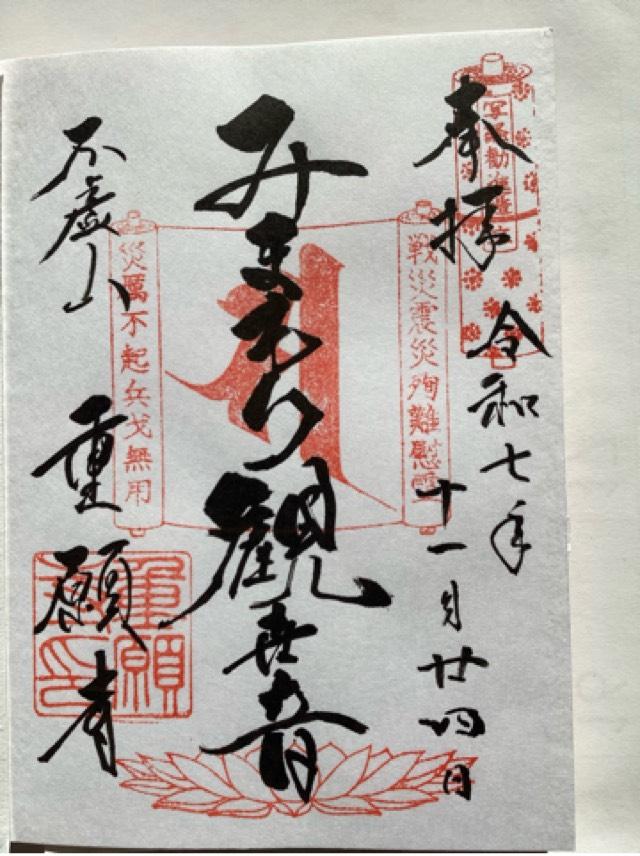 奉拝
令和七年
十一月廿四日
戦災震災殉難慰霊
みまもり観世音
災厲不起兵戈無用
不虚山
重願寺
重願寺印